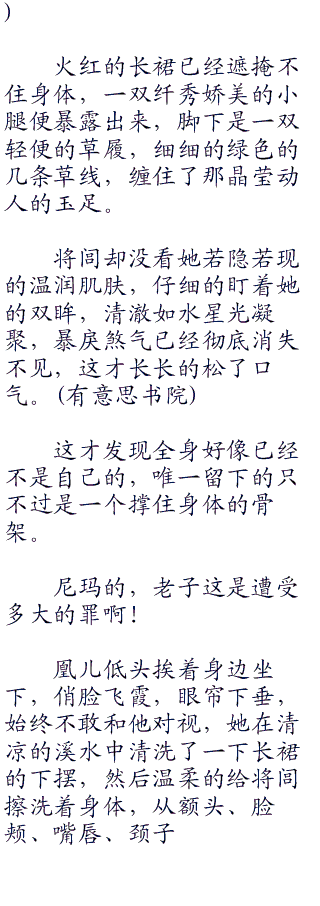 )
火红的长裙已经遮掩不
住身体，一双纤秀娇美的小
腿便暴露出来，脚下是一双
轻便的草履，细细的绿色的
几条草线，缠住了那晶莹动
人的玉足。
将闾却没看她若隐若现
的温润肌肤，仔细的盯着她
的双眸，清澈如水星光凝
聚，暴戾煞气已经彻底消失
不见，这才长长的松了口
气。 (有意思书院)
这才发现全身好像已经
不是自己的，唯一留下的只
不过是一个撑住身体的骨
架。
尼玛的，老子这是遭受
多大的罪啊！
凰儿低头挨着身边坐
下，俏脸飞霞，眼帘下垂，
始终不敢和他对视，她在清
凉的溪水中清洗了一下长裙
的下摆，然后温柔的给将闾
擦洗着身体，从额头、脸
颊、嘴唇、颈子